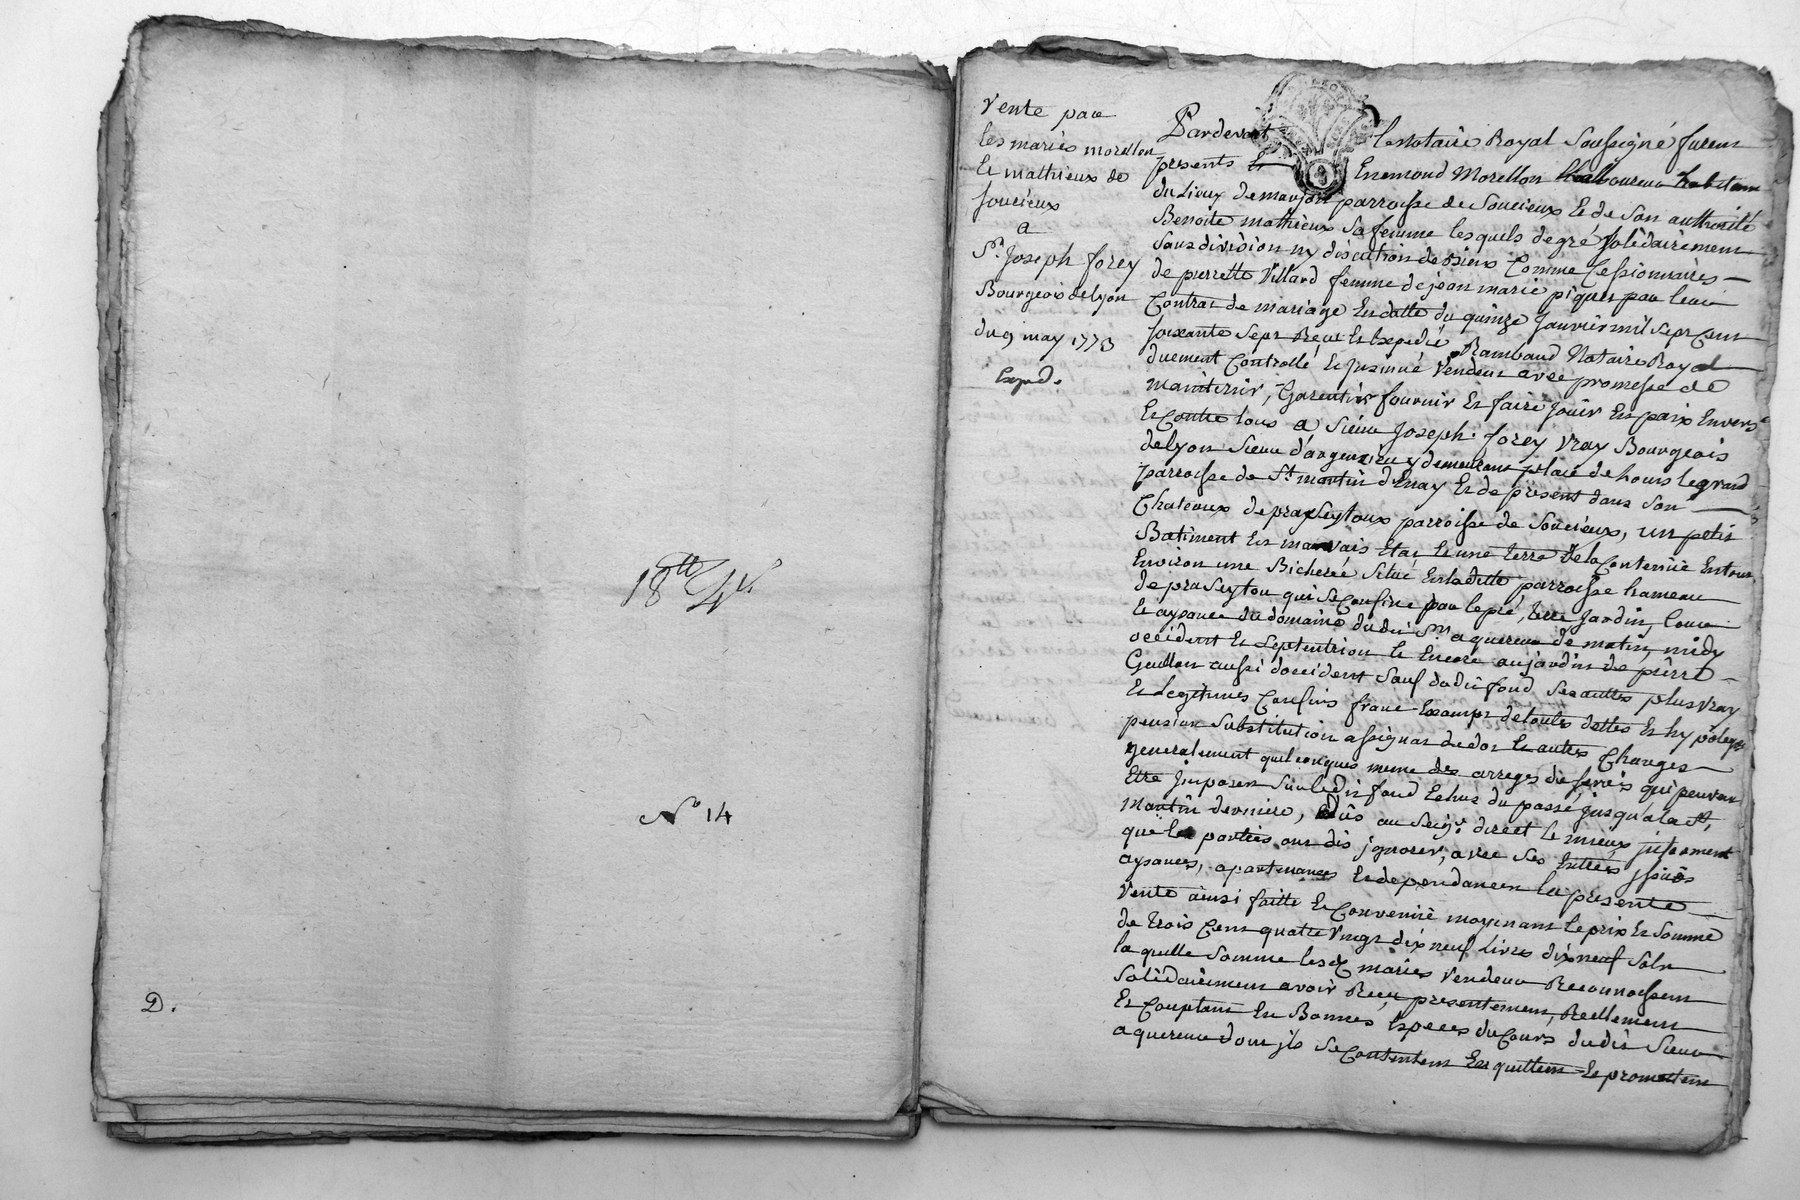 18tt 4s
N° 14
D.
Vente par
les mariés morellon
Et mathieux de
soucieux
a
Sr. Joseph forey
Bourgeois de lyon
du 9 may 1773
Exped.
Pardevant le Notaire Royal Soussigné furent
presents Et Enemond Morellon Laboureur habitant
du Lieux de marjon parroisse de Soucieux Et de Son authorité
Benoite mathieux Sa femme lesquels de gré Solidairement
Sans division ny discution de biens Comme Cessionnaires
de pierrette Villard femme de jean marie piquet par leur
Contrat de mariage En datte du quinze Janvier mil Sept Cent
soixante Sept Reçu Et Expedié Rambaud Notaire Royal
duement Controllé Et Jnsinué Vendent avec promesse de
maintenir, Garentir fournir Et faire Jouir En paix Envers
Et Contre tous a Sieur Joseph forey Vray Bourgeois
de lyon Sieur d'argenvieu y demeurant place de hours le grand
parroisse de St. martin d'Enay Et de present dans Son
Chateaux de praseytoux parroisse de Soucieux, un petit
Batiment En mauvais Etat Et une terre De la Contenue Entour
Environ une Bicherée Situé En laditte parroisse hameau
de praseytou qui Se Confine par le pré, terre Jardin, Cour
Et aysance du domaine dudit Sr. aquereur de matin, midy
occident Et Septentrion Et Encore au jardin de pierre
Guillon aussi d'occident Sauf dudit fond Ses autres plus vray
Et Legitimes Confins franc Exempt de toutes dettes Et hypoteques
pension Substitution assignat de dot Et autres Charges
generalement quelconques meme des arreges de servis qui peuvent
Etre Jmposer Sur ledit fond Echus du passé jusqu'a la St.
martin derniere, Dûs au Seigr. direct le mieux jnformement
que les parties ont dit jgnorer, avec Ses Entrées jssuës
aysances, apartenances Et dependances la presente
Vente ainsi faitte Et Convenuë moyenant le prix Et Somme
de trois Cent quatre Vingt dix neuf Livres dix neuf Sols
laquelle Somme lesdt mariés Vendeur Reconnoissent
Solidairement avoir Reçu presentement, Reellement
Et Comptant En Bonnes Especes du Cours dudit Sieur
aquereur dont jls Se Contentent En quittent Et promettent